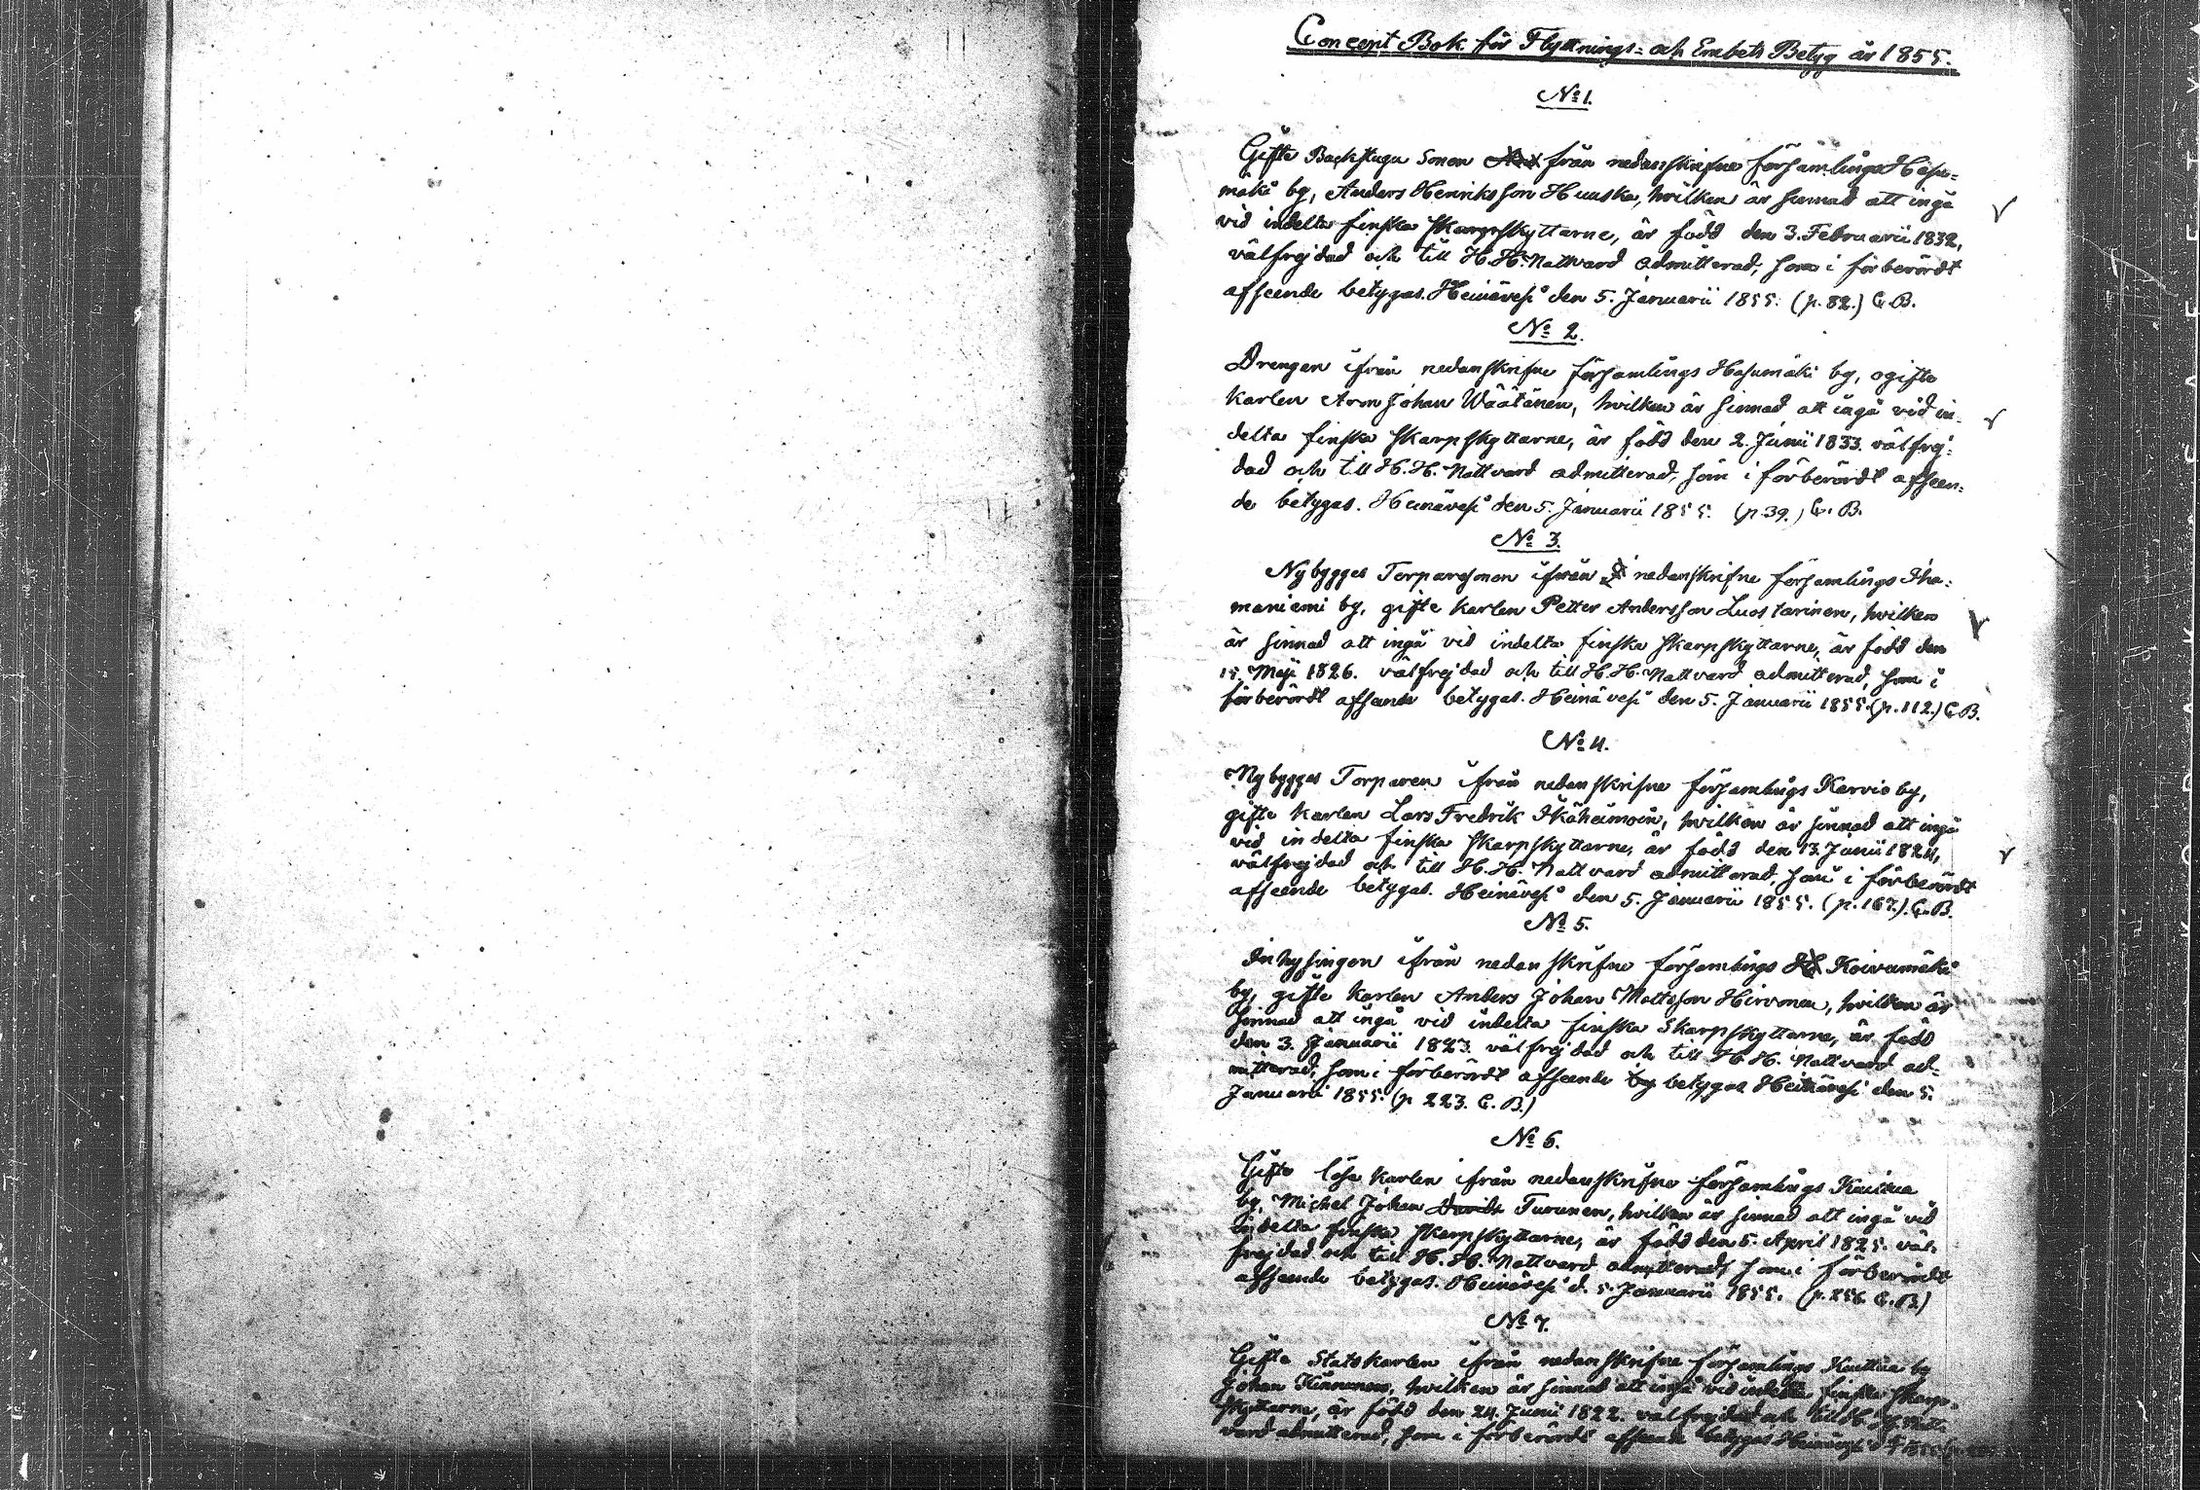 Concept Bok för Flyttnings= och Embets Betyg år 1855.
No 1.
Gifte Backstugu Sonen från nedanskrifne församlings Hasu=
mäki by, Anders Henriksson Huuska, hvilken är sinnad att ingå
vid indelta finska skarpskyttarne, är född den 3. Februarii 1832,
välfrejdad och till H. H. Nattvard admitterad, som i förberördt
afseende betygas. Heinävesi den 5. Januarii 1855. (p. 82.) C. B.
No 2.
Drengen ifrån nedanskrifne församlings Hasumäki by, ogifte
karlen Aron Johan Wäätänen, hvilken är sinnad att ingå vid in=
delta finska skarpskyttarne, är född den 2. Junii 1833. välfrej=
dad och till H. H. Nattvard admitterad, som i förberördt afseen=
de betygas. Heinävesi den 5. Januarii 1855. (p. 39.) C. B.
No 3.
Nybygges Torparesonen ifrån nedanskrifne församlings Iha=
maniemi by, gifte karlen Petter Andersson Luostarinen, hvilken
är sinnad att ingå vid indelta finska skarpskyttarne, är född den
15. Maji 1826. välfrejdad och till H. H. Nattvard admitterad, som i
förberördt afseende betygas. Heinävesi den 5. Januarii 1855. (p. 112.) C. B.
No 4.
Nybygges Torparen ifrån nedanskrifne församlings Karvio by,
gifte karlen Lars Fredrik Ikäheimoin, hvilken är sinnad att ingå
vid indelta finska skarpskyttarne, är född den 13. Junii 1824,
välfrejdad och till H. H. Nattvard admitterad, som i förberördt
afseende betygas. Heinävesi den 5. Januarii 1855. (p. 167.) C. B.
No 5.
Inhysingen ifrån nedanskrifne församlings Koivumäki
by, gifte karlen Anders Johan Mattsson Hirvonen, hvilken är
sinnad att ingå vid indelta finska Skarpskyttarne, är född
den 3. Januarii 1823. välfrejdad och till H. H. Nattvard ad=
mitterad, som i förberördt afseende by betygas Heinävesi den 5.
Januarii 1855. (p. 223. C. B.)
No 6.
Gifte lösa karlen ifrån nedanskrifne församlings
by, Michel Johan Turunen, hvilken är sinnad att ingå vid
indelta finska skarpskyttarne, är född den 5. April 1825. väl=
frejdad och till H. H. Nattvard admitterad, som i förberördt
afseende betygas. Heinävesi d. 5. Januarii 1855. (p. 256. C. B.)
No 7.
Gifte Statskarlen ifrån nedanskrifne församlings by
Johan Kinnunen, hvilken är sinnad att ingå vid indelta finska skarp=
skyttarne, är född den 24. Junii 1822. välfrejdad och till H. H. Natt=
vard admitterad, som i förberördt afseende betygas Heinävesi d. 5